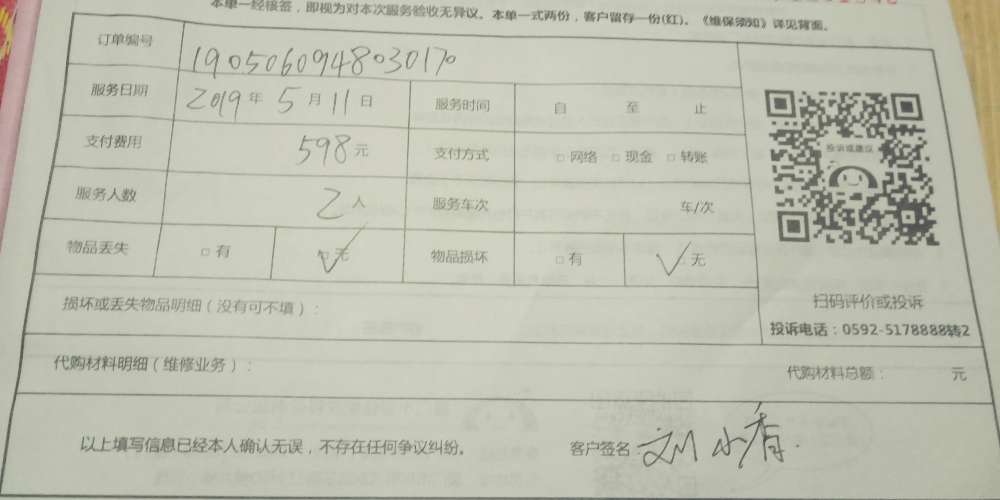 本单一经核签，即视为对本次服务验收无异议。本单一式两份，客户留存一份(红)。《维保须知》详见背面。
订单编号 1905060948030170
服务日期 2019年5月11日 服务时间 自 至 止
支付费用 598元 支付方式 □网络 □现金 □转账
服务人数 2人 服务车次 车/次
物品丢失 □有 □无 物品损坏 □有 □无
投诉或建议
扫码评价或投诉
投诉电话：0592-5178888转2
损坏或丢失物品明细（没有可不填）：
代购材料明细（维修业务）： 代购材料总额： 元
以上填写信息已经本人确认无误，不存在任何争议纠纷。 客户签名 刘小春